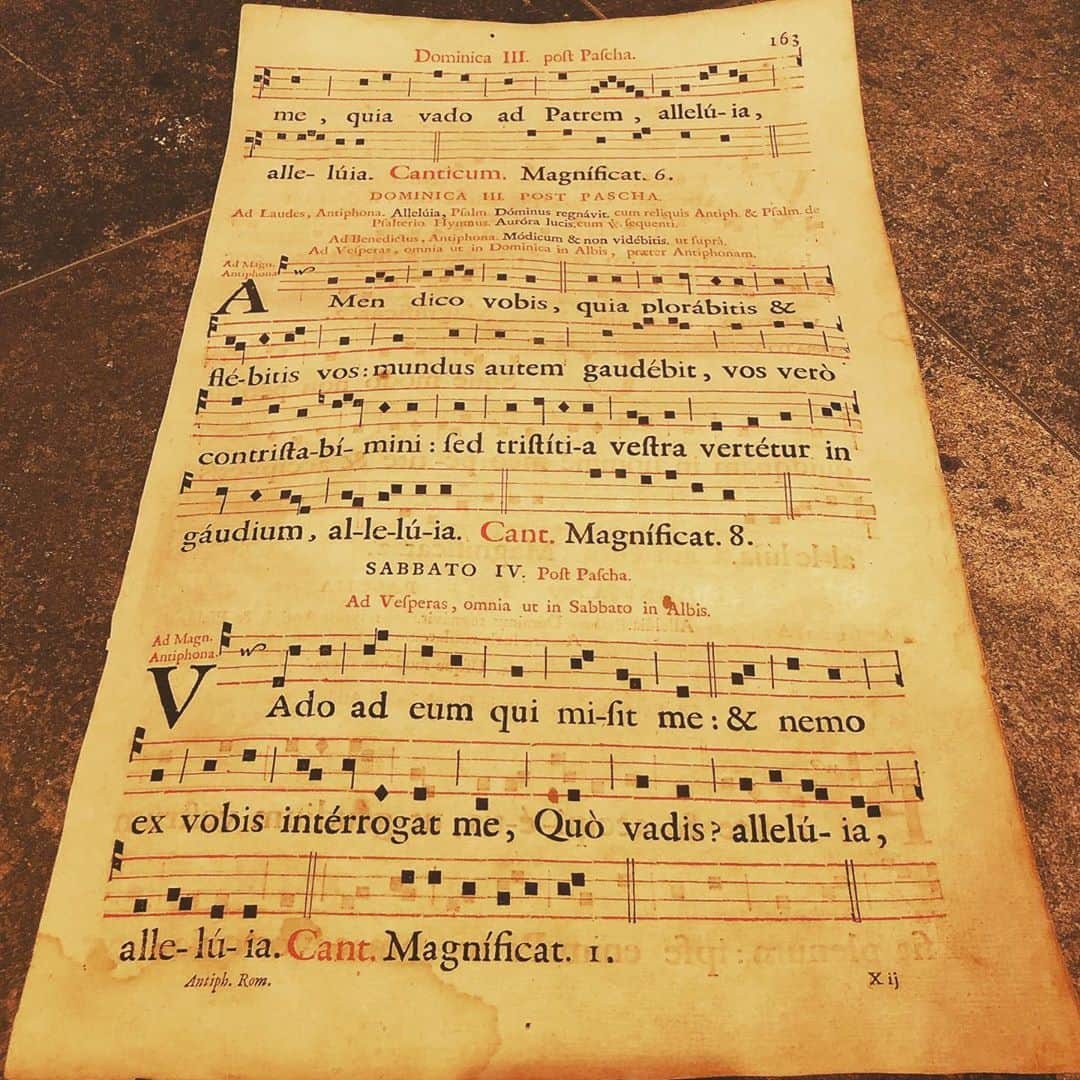 163
Dominica III. poſt Paſcha.
me, quia vado ad Patrem, allelú-ia,
alle- lúia. Canticum. Magníficat. 6.
DOMINICA III. POST PASCHA.
Ad Laudes, Antiphona. Allelúia, Pſalm. Dóminus regnávit, cum reliquis Antiph. & Pſalm. de
Pſalterio. Hymnus. Auróra lucis, cum ℣. ſequenti.
Ad Benedictus, Antiphona. Módicum & non vidébitis, ut ſuprà.
Ad Veſperas, omnia ut in Dominica in Albis, præter Antiphonam.
Ad Magn.
Antiphona.
AMen dico vobis, quia plorábitis &
flé-bitis vos: mundus autem gaudébit, vos verò
contriſta-bí- mini: ſed triſtíti-a veſtra vertétur in
gáudium, al-le-lú-ia. Cant. Magníficat. 8.
SABBATO IV. Poſt Paſcha.
Ad Veſperas, omnia ut in Sabbato in Albis.
Ad Magn.
Antiphona.
VAdo ad eum qui mi-ſit me: & nemo
ex vobis intérrogat me, Quò vadis? allelú- ia,
alle-lú- ia. Cant. Magníficat. 1.
Antiph. Rom. X ij